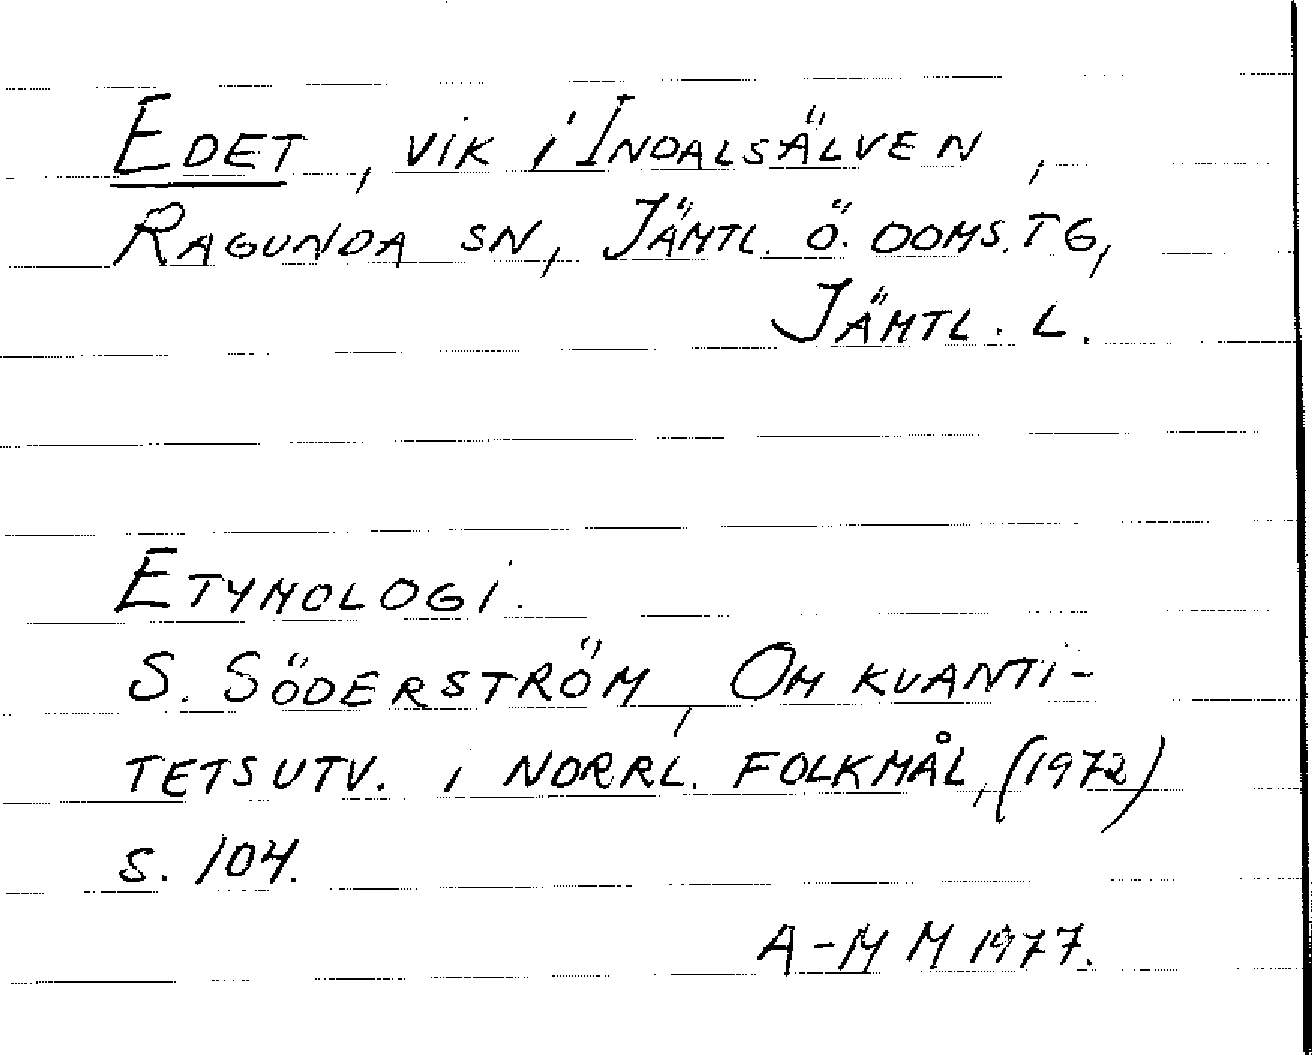 EDET, VIK I INDALSÄLVEN,
RAGUNDA SN, JÄMTL. Ö. DOMS. TG,
JÄMTL. L.
ETYMOLOGI.
S. SÖDERSTRÖM, OM KVANTI-
TETSUTV. I NORRL. FOLKMÅL, (1972)
S. 104.
A-M M 1977.